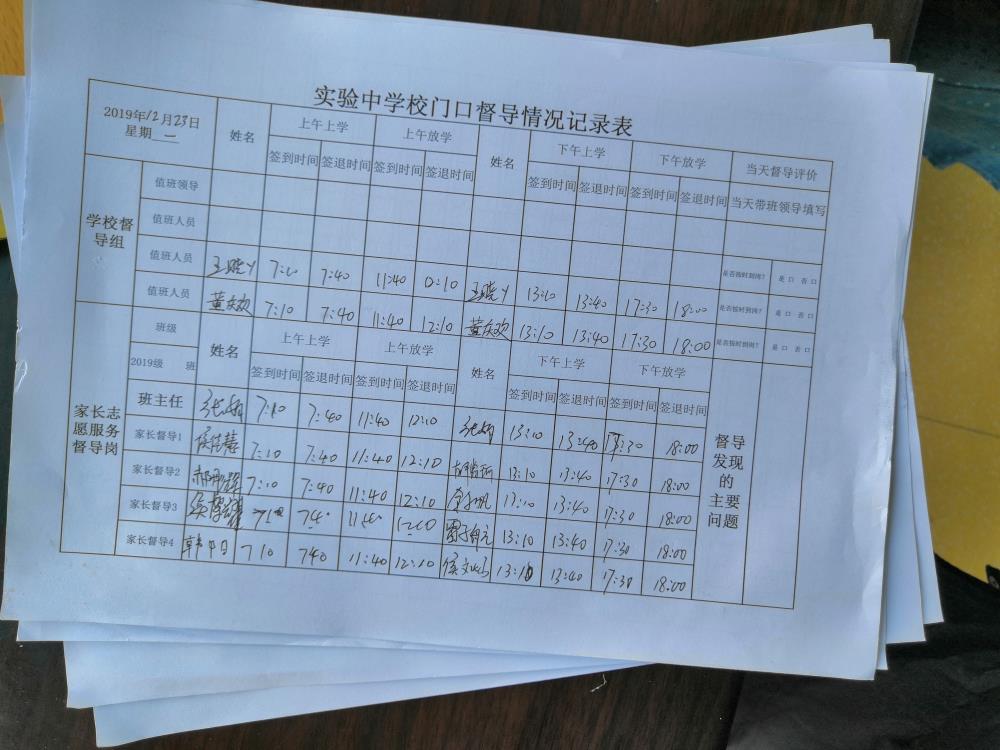 实验中学校门口督导情况记录表
2019年12月23日
星期 二
姓名 上午上学 上午放学 姓名 下午上学 下午放学 当天督导评价
签到时间 签退时间 签到时间 签退时间 签到时间 签退时间 签到时间 签退时间 当天带班领导填写
学校督导组
值班领导
值班人员
值班人员 7:10 7:40 11:40 12:10 13:10 13:40 17:30 18:00 是否按时到岗? 是 口 否 口
值班人员 7:10 7:40 11:40 12:10 13:10 13:40 17:30 18:00 是否按时到岗? 是 口 否 口
是否按时到岗? 是 口 否 口
家长志愿服务督导岗
班级 姓名 上午上学 上午放学 姓名 下午上学 下午放学
2019级 班 签到时间 签退时间 签到时间 签退时间 签到时间 签退时间 签到时间 签退时间
班主任 7:10 7:40 11:40 12:10 13:10 13:40 17:30 18:00
家长督导1 7:10 7:40 11:40 12:10 13:10 13:40 17:30 18:00
家长督导2 7:10 7:40 11:40 12:10 13:10 13:40 17:30 18:00
家长督导3 710 740 1140 1210 13:10 13:40 17:30 18:00
家长督导4 710 740 11:40 12:10 13:10 13:40 17:30 18:00
督导
发现
的
主要
问题